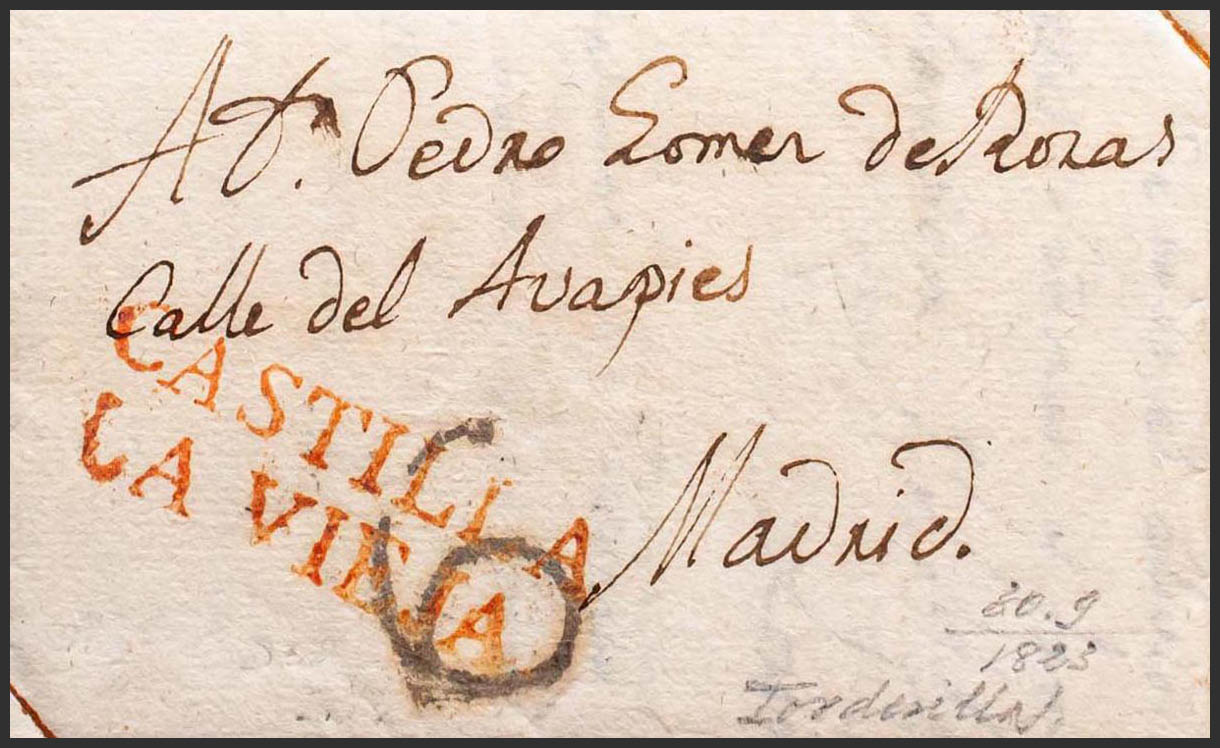 A Dn. Pedro Gomez de Rozas
Calle del Avapies
CASTILLA
LA VIEJA
6
Madrid.
20.9
1823
Tordesillas.